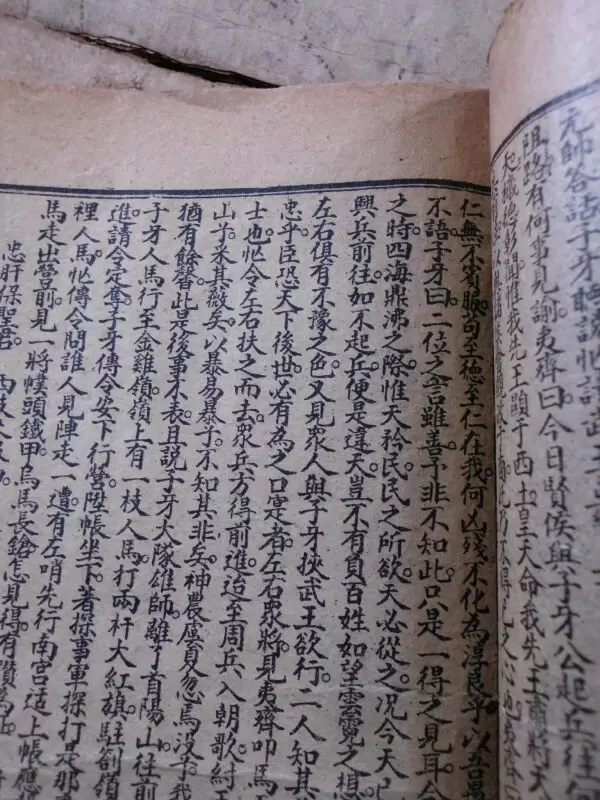 元帥答話子牙聽說忙請武王
阻路有何事見諭夷齊曰今日賢侯與子牙公起兵往何
天賦德彰聞惟我先王顯于西土皇天命我先王肅將天
仁無不賓服苟至德至仁在我何凶殘不化為淳良乎以吾萬
不語子牙曰二位之言雖善予非不知此只是一得之見耳今
之時四海鼎沸之際惟天矜民民之所欲天必從之况今天已
興兵前往如不起兵便是違天豈不有負百姓如望雲霓之想
左右俱有不豫之色又見眾人與子牙挾武王欲行二人知其
忠乎臣恐天下後世必有為之口寔者左右眾將見夷齊叩馬
士也忙令左右扶之而去眾兵方得前進迨至周兵入朝歌紂
山兮采其薇矣以暴易暴子不知其非矣神農虞夏忽焉没兮我
猶有餘馨此是後事不表且說子牙大隊雄師離了首陽山往前
子牙人馬行至金雞嶺嶺上有一枝人馬打兩杆大紅旗駐劄嶺
進請令定奪子牙傳令安下行營陞帳坐下著探事軍探打是那
裡人馬忙傳令問誰人見陣走一遭有左哨先行南宮适上帳應
馬走出營前見一將幞頭鐵甲烏馬長鎗怎見得有贊為
忠肝保聖君